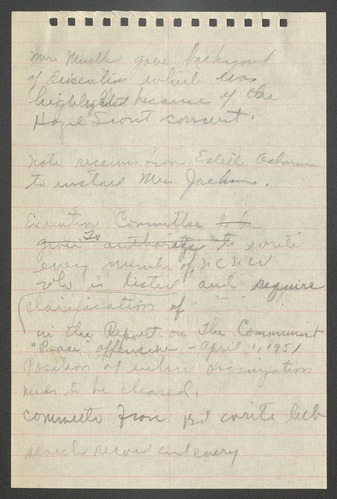 Mrs. Mueller gave background
of discussion which was
highlighted because of the
Hazel Scott concert.
Note received from Estelle Osborne
to instead Mrs. Jackson.
Executive Committee to be
given to authority to write
every member of NCNW
who is listed and require
clarification of " "
in the Report on The Communist
"Peace" offensive - April 1, 1951
Position of entire organization
needs to be cleared.
Committee from Bd write
search record and every